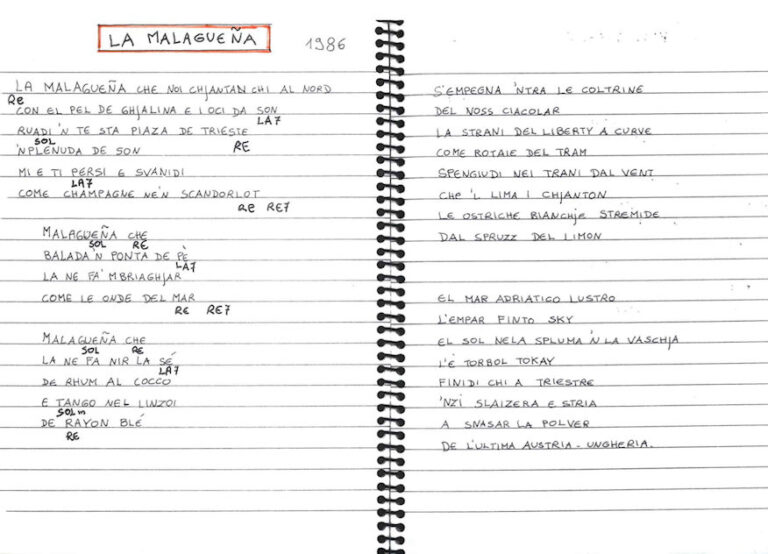 LA MALAGUEÑA 1986
LA MALAGUEÑA CHE NOI CHJANTAN CHI AL NORD
RE
CON EL PEL DE GHJALINA E I OCI DA SON
LA7
RUADI 'N TE STA PIAZA DE TRIESTE
SOL RE
'NPLENUDA DE SON
MI E TI PERSI E SVANIDI
LA7
COME CHAMPAGNE NE'N SCANDORLOT
RE RE7
MALAGUEÑA CHE
SOL RE
BALADA 'N PONTA DE PÈ
LA7
LA NE FA' MBRIAGHJAR
COME LE ONDE DEL MAR
RE RE7
MALAGUEÑA CHE
SOL RE
LA NE FA NIR LA SÉ
LA7
DE RHUM AL COCCO
E TANGO NEL LINZOI
SOLm
DE RAYON BLÉ
RE
S'EMPEGNA 'NTRA LE COLTRINE
DEL NOSS CIACOLAR
LA STRANI DEL LIBERTY A CURVE
COME ROTAIE DEL TRAM
SPENGIUDI NEI TRANI DAL VENT
CHE 'L LIMA I CHJANTON
LE OSTRICHE BIANCHJE STREMIDE
DAL SPRUZZ DEL LIMON
EL MAR ADRIATICO LUSTRO
L'EMPAR FINTO SKY
EL SOL NELA SPLUMA 'N LA VASCHJA
L'È TORBOL TOKAY
FINIDI CHI A TRIESTRE
'NZI SLAIZERA E STRIA
A SNASAR LA POLVER
DE L'ULTIMA AUSTRIA - UNGHERIA.